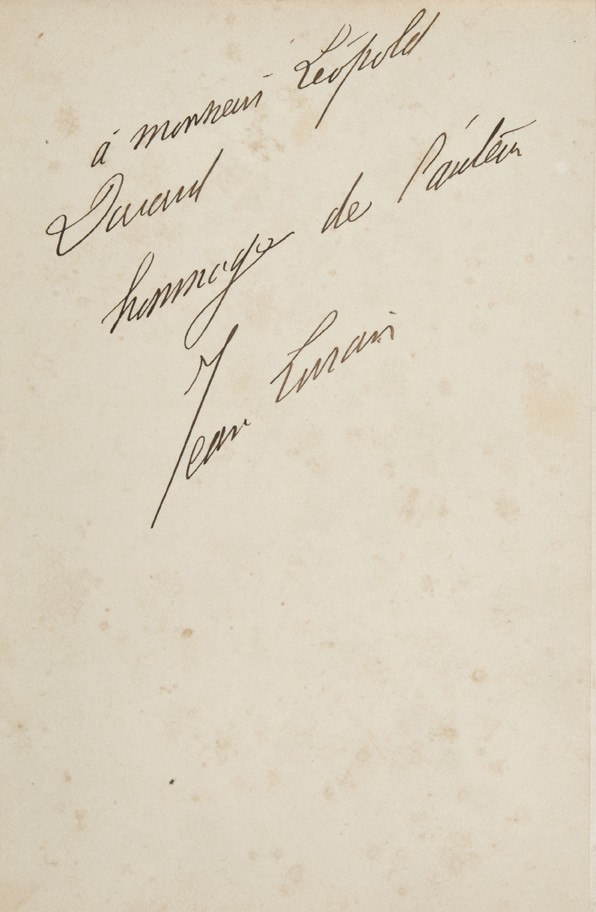 à monsieur Léopold
Durand
hommage de l'auteur
Jean Lorrain